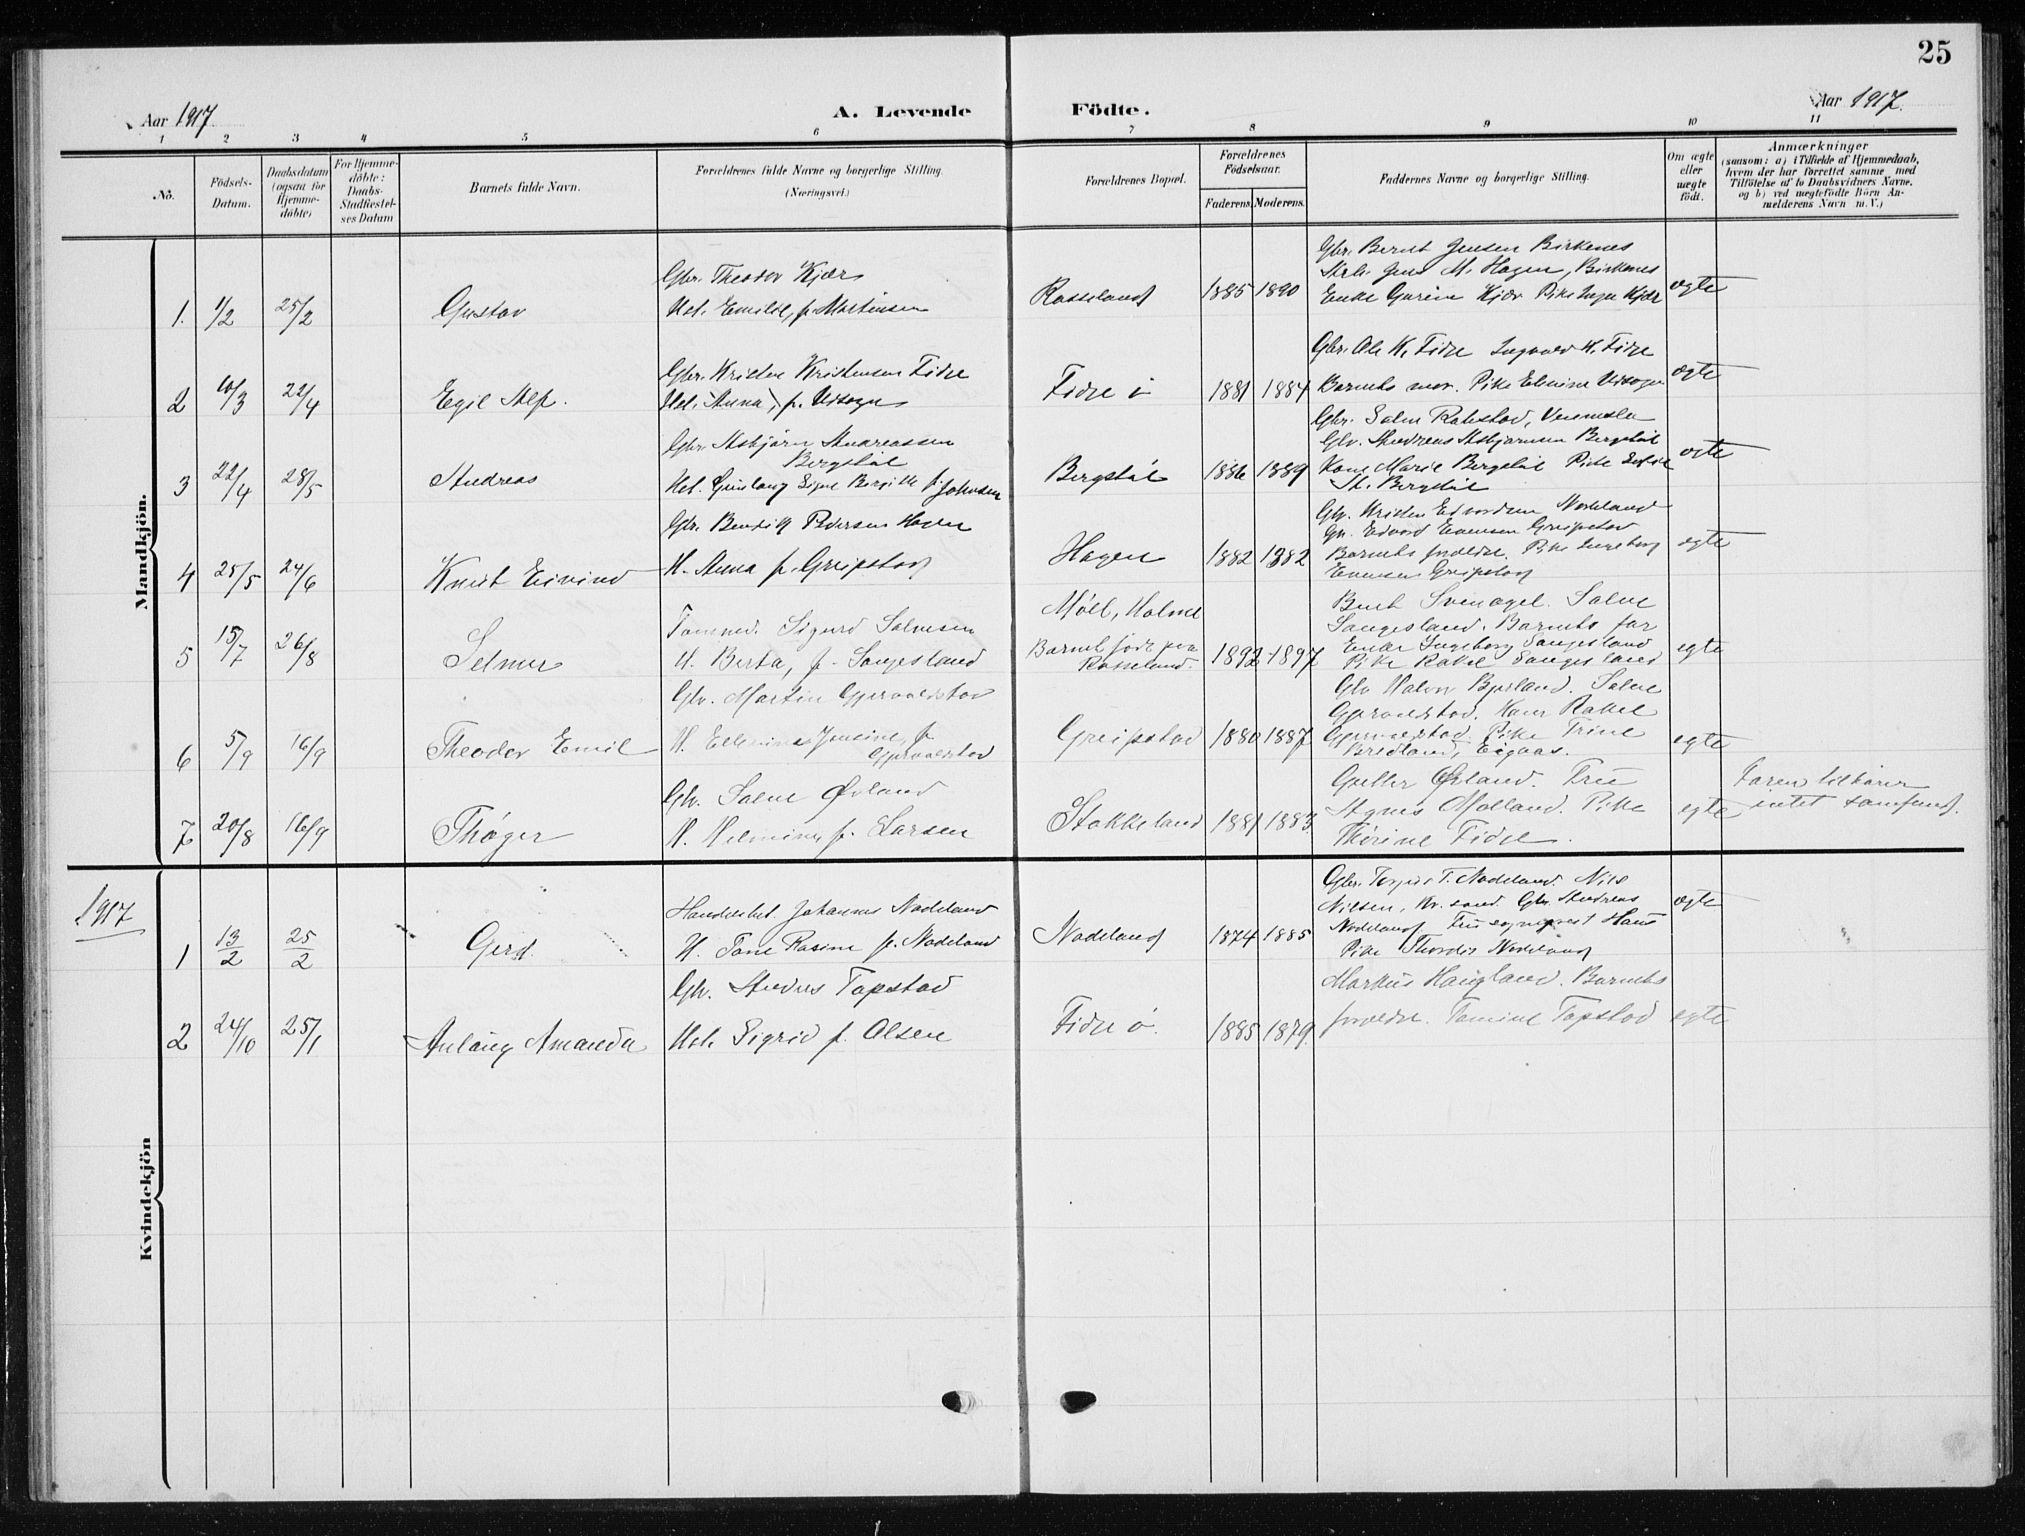 25
Aar 1917
A. Levende
Födte.
Aar 1917.
1 2 3 4 5 6 7 8 9 10 11
No.
Födsels-
Datum.
Daabsdatum
(ogsaa for
Hjemme-
döbte)
For Hjemme-
döbte:
Daabs-
Stadfæstel-
ses Datum
Barnets fulde Navn.
Forældrenes fulde Navne og borgerlige Stilling.
(Næringsvei.)
Forældrenes Bopæl.
Forældrenes
Födselsaar.
Faderens. Moderens.
Faddernes Navne og borgerlige Stilling.
Om ægte
eller
uægte
födt.
Anmærkninger
(saasom: a) i Tilfælde af Hjemmedaab,
hvem der har forrettet samme, med
Tilföielse af to Daabsvidners Navne,
og b) ved uægtefödte Börn An-
melderens Navn m. V.)
Mandkjön.
1. 1/2 25/2 Gustav
Gbr. Theodor Kjær
Hst. Emilie, f. Martinsen
Rosseland 1885 1890
Gbr. Bernt Jensen Birkenes
Jens M. Hagen, Birkenes
Enke Gurine Kjær Pike Inga Kjær
ægte
2 10/3 22/4 Egil Alf.
Gbr. Kristen Kristensen Fidje
Hst. Anna, f.
Fidje ö 1881 1884
Gbr. Ole K. Fidje Ingvald K. Fidje
Barnets mor. Pike Elmine
ægte
3 22/4 28/5 Andreas
Gbr. Asbjörn Andreassen
Bergstöl
Hst. Gunlaug Signe Borgille f. Johnsen
Bergstöl 1886 1889
Gbr. Salve Robstad, Vennesla
Gbr. Andreas Asbjörnsen Bergstöl
Kone Marie Bergstöl Pike
A. Bergstöl
ægte
4 25/5 24/6 Knut Eivind
Gbr. Bendik Pedersen Hagen
H. Anna f. Greipstad
Hagen 1882 1882
Gbr. Kristen Edvardsen Nodeland
Gbr. Edvard Evensen Greipstad
Barnets foreldre. Pike Ingeborg
Evensen Greipstad
egte
5 15/7 26/8 Selmer
Tömmerm. Sigurd Salvesen
H. Berta, f. Sangesland
Möll, Holme
Barnet födt paa
Rosseland. 1892 1897
Salve
Sangesland. Barnets far
Enke Ingeborg Sangesland
Pike Rakel Sangesland
egte
6 5/9 16/9 Theodor Emil
Gbr. Martin Gjervoldstad
H. Ellenine Jensine, f.
Gjervoldstad
Greipstad 1880 1887
Gbr Halvor Salve
Gjervoldstad. Kone Rakel
Gjervoldstad. Pike Trine
Bredland, Eigaas.
egte
7 20/8 16/9 Thöger
Gbr. Salve Övland
H. Helmine, f. Larsen
Stokkeland 1881 1883
Övland. Fru
Agnes Molland. Pike
Thörine Fidje.
egte
Faren tilhører
intet samfund.
1917
Kvindekjön
1 13/2 25/2 Gerd.
Handelsbet. Johannes Nodeland
H. Tone Rasine f. Nodeland
Nodeland 1874 1885
Gbr. T. Nodeland. Nils
Nilsen, Kr.sand. Gbr. Andreas
Nodeland Fru sogneprest Hans
Pike Thordis Nodeland
ægte
2 24/10 25/1 Anlaug Amanda
Gbr. Andres Topstad
Hst. Sigrid f. Olsen
Fidje ö. 1885 1879.
Markus Haugland. Barnets
foreldre. Tomine Topstad
egte